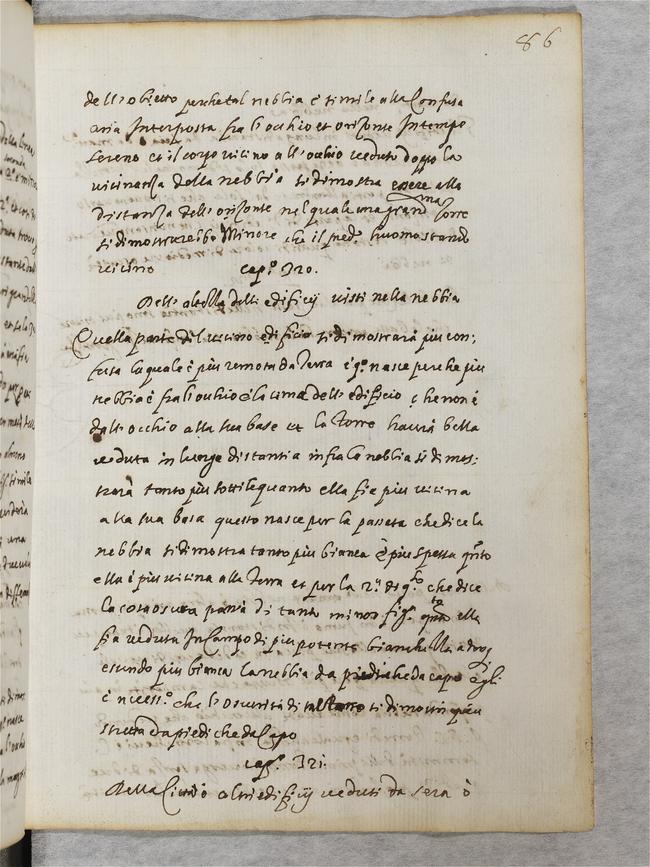 86
dell'obietto perche tal nebbia è simile alla Confusa
aria Interposta fra l'occhio et orizonte In tempo
sereno et il corpo vicino all'occhio veduto doppo la
vicinanza della nebbia si dimostra essere alla
Distanza dell'orizonte nel quale una gran ma Torre
si dimostrarebbe Minore che il pred.º huomo stando
vicino cap.º 320.
Dell'altezza delli edificij visti nella nebbia
Quella parte di l vicino edificio si di mostrarà piu con:
fusa la quale è più remota da Terra è q.º nasce perche piu
nebbia è fra l'occhio è la cima dell'edificio che non è
dall'occhio alla sua base et la Torre
veduta in lunga distantia infra la nebbia si di mos:
trarà tanto più sottile quanto ella fia piu vicina
alla sua basa questo nasce per la passata che dice la
nebbia si dimostra tanto piu bianca è piu spessa q.nto
ella è più vicina alla Terra et per la 2.ª di q.º che dice
la cosa oscura parrà di tanto minor fig.ª q.nto ella
fia veduta In Campo di piu potente bianchezza adoq
essendo piu bianca la nebbia da piedi che da capo egli
è necess.º che l'oscurità di tal si dimostri piu
stretta da piedi che da Capo
cap.º 321.
Della Città ò altri edificij veduti da sera ò